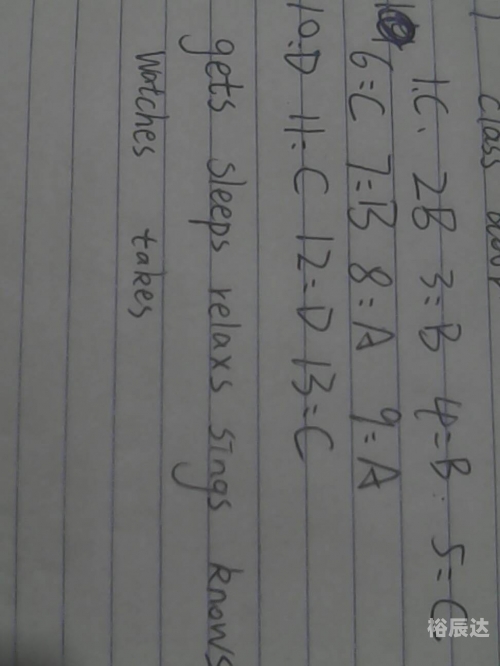 Class
1.C. 2B 3=B 4=B. 5=C
6=C 7=B 8=A 9=A
10.D 11=C 12=D 13=C
gets sleeps relaxs sings knows
Watches takes
裕辰达